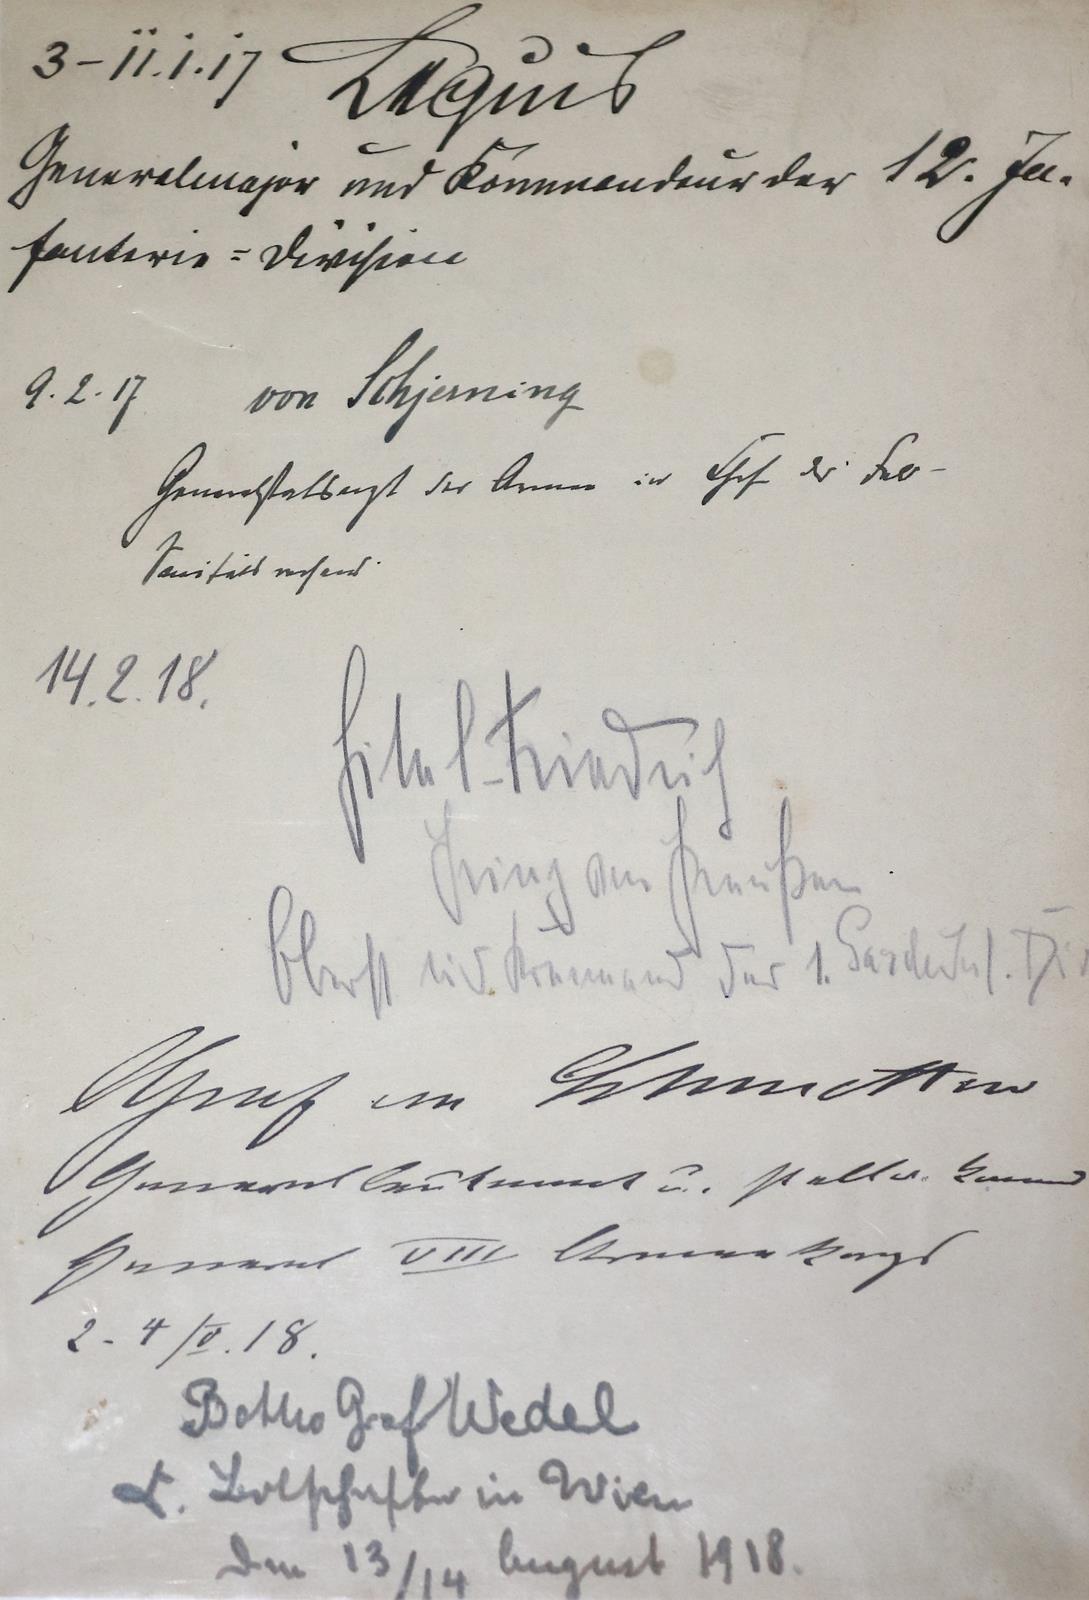 3-11.1.17 Lequis
Generalmajor und Kommandeur der 12. In-
fanterie=Division
9.2.17 von Schjerning
Generalstabsarzt der Armee u. Chef des Feld-
Sanitätswesens
14.2.18.
Eitel-Friedrich
Prinz von Preußen
Oberst und Kommand der 1. Garde Inf. Div
Graf von Schmettow
Generalleutnant u. stellv. Komm
General VIII Armeekorps
2-4/V.18.
Botho Graf Wedel
K. Botschafter in Wien
den 13/14 August 1918.